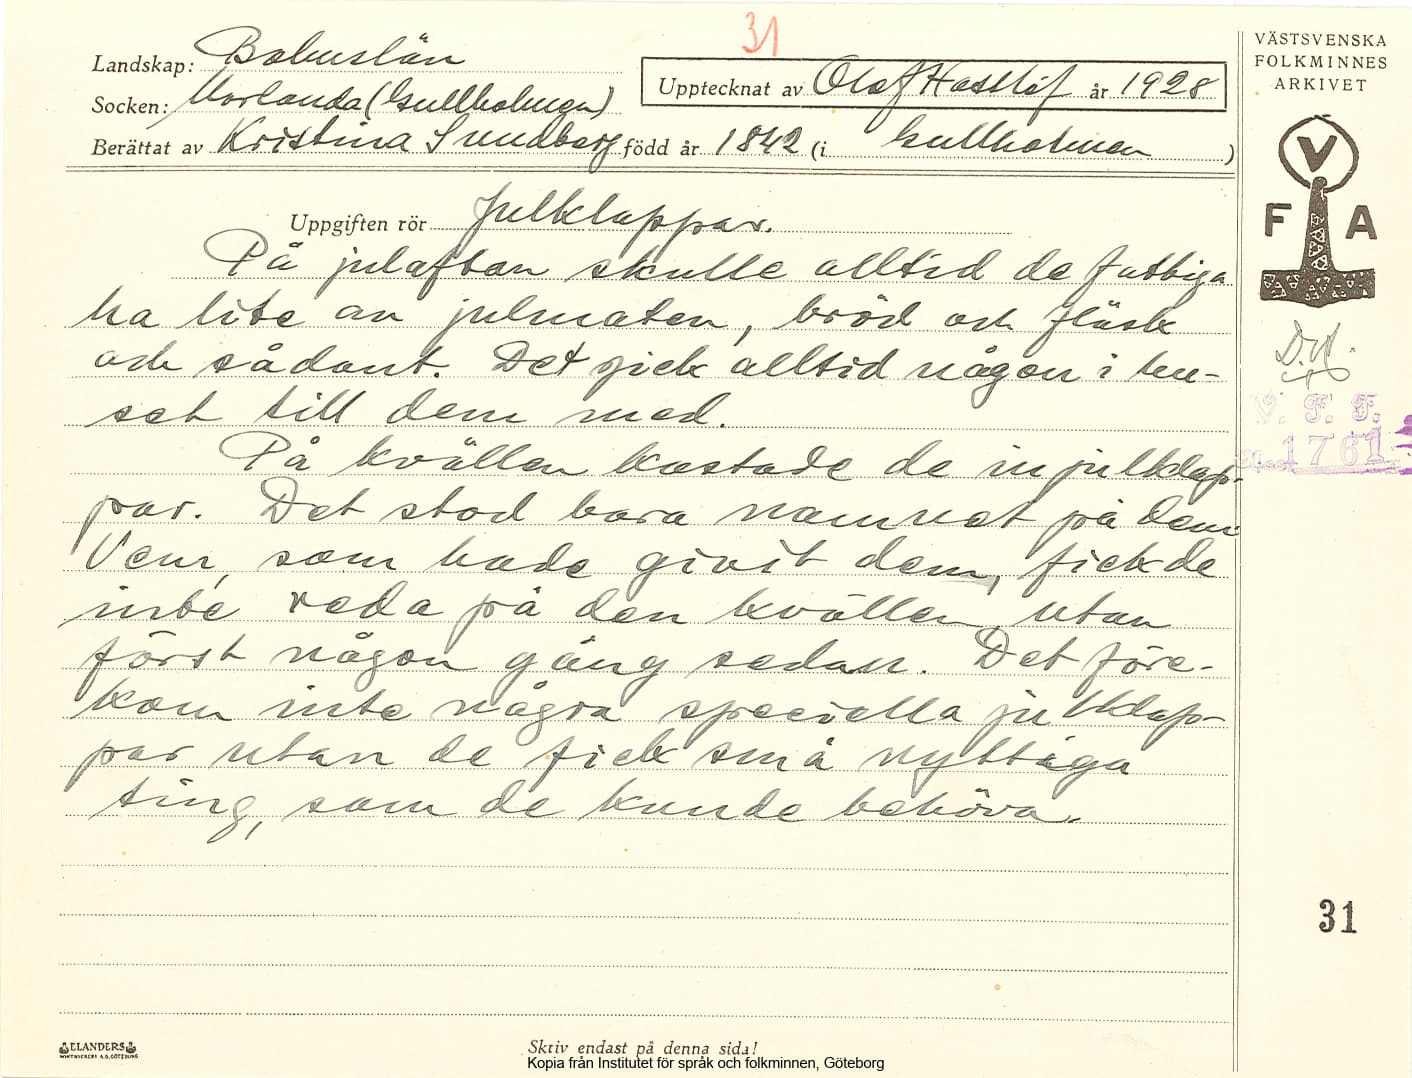 31
Landskap: Bohuslän
Socken: Morlanda (Gullholmen)
Upptecknat av Olof Hasslöf år 1928
Berättat av Kristina Sundberg född år 1842 (i Gullholmen)
Uppgiften rör Julklappar.
På julaftan skulle alltid de fattiga
ha lite an julmaten, bröd och fläsk
och sådant. Det gick alltid någon i hu-
set till dem med.
På kvällen kastade de in julklap-
par. Det stod bara namnet på dem
Vem, som hade givit dem, fick de
inte reda på den kvällen, utan
först någon gång sedan. Det före-
kom inte några speciella julklap-
par utan de fick små nyttiga
ting, som de kunde behöva.
VÄSTSVENSKA
FOLKMINNES
ARKIVET
V
F A
V. F. F.
1761
31
ELANDERS
Skriv endast på denna sida!
Kopia från Institutet för språk och folkminnen, Göteborg